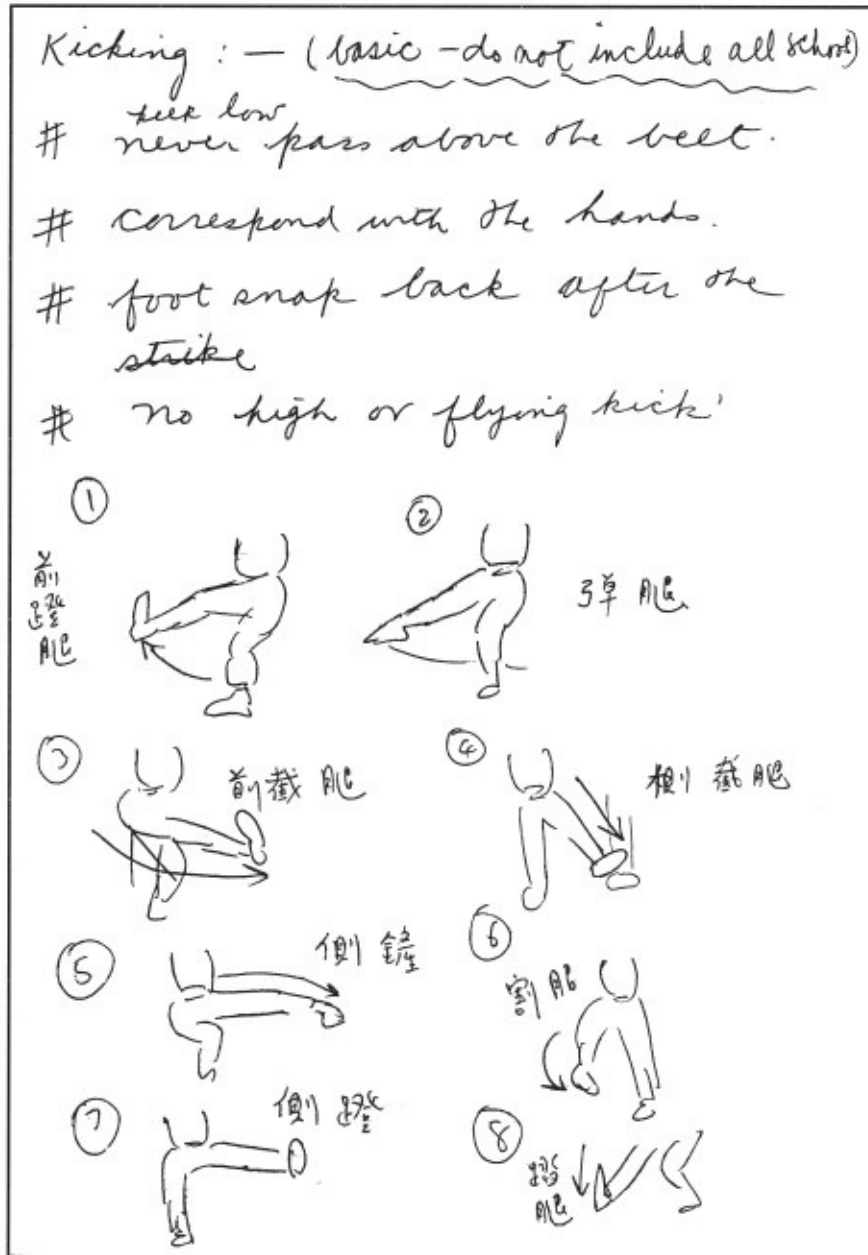 Kicking : — (basic - do not include all school)
keep low
# never pass above the belt.
# correspond with the hands.
# foot snap back after the
strike
# no high or flying kick'
① ②
前蹬腿
弹腿
③ ④
前截腿
側截腿
⑤ ⑥
側鏟
割腿
⑦ ⑧
側蹬
踏腿